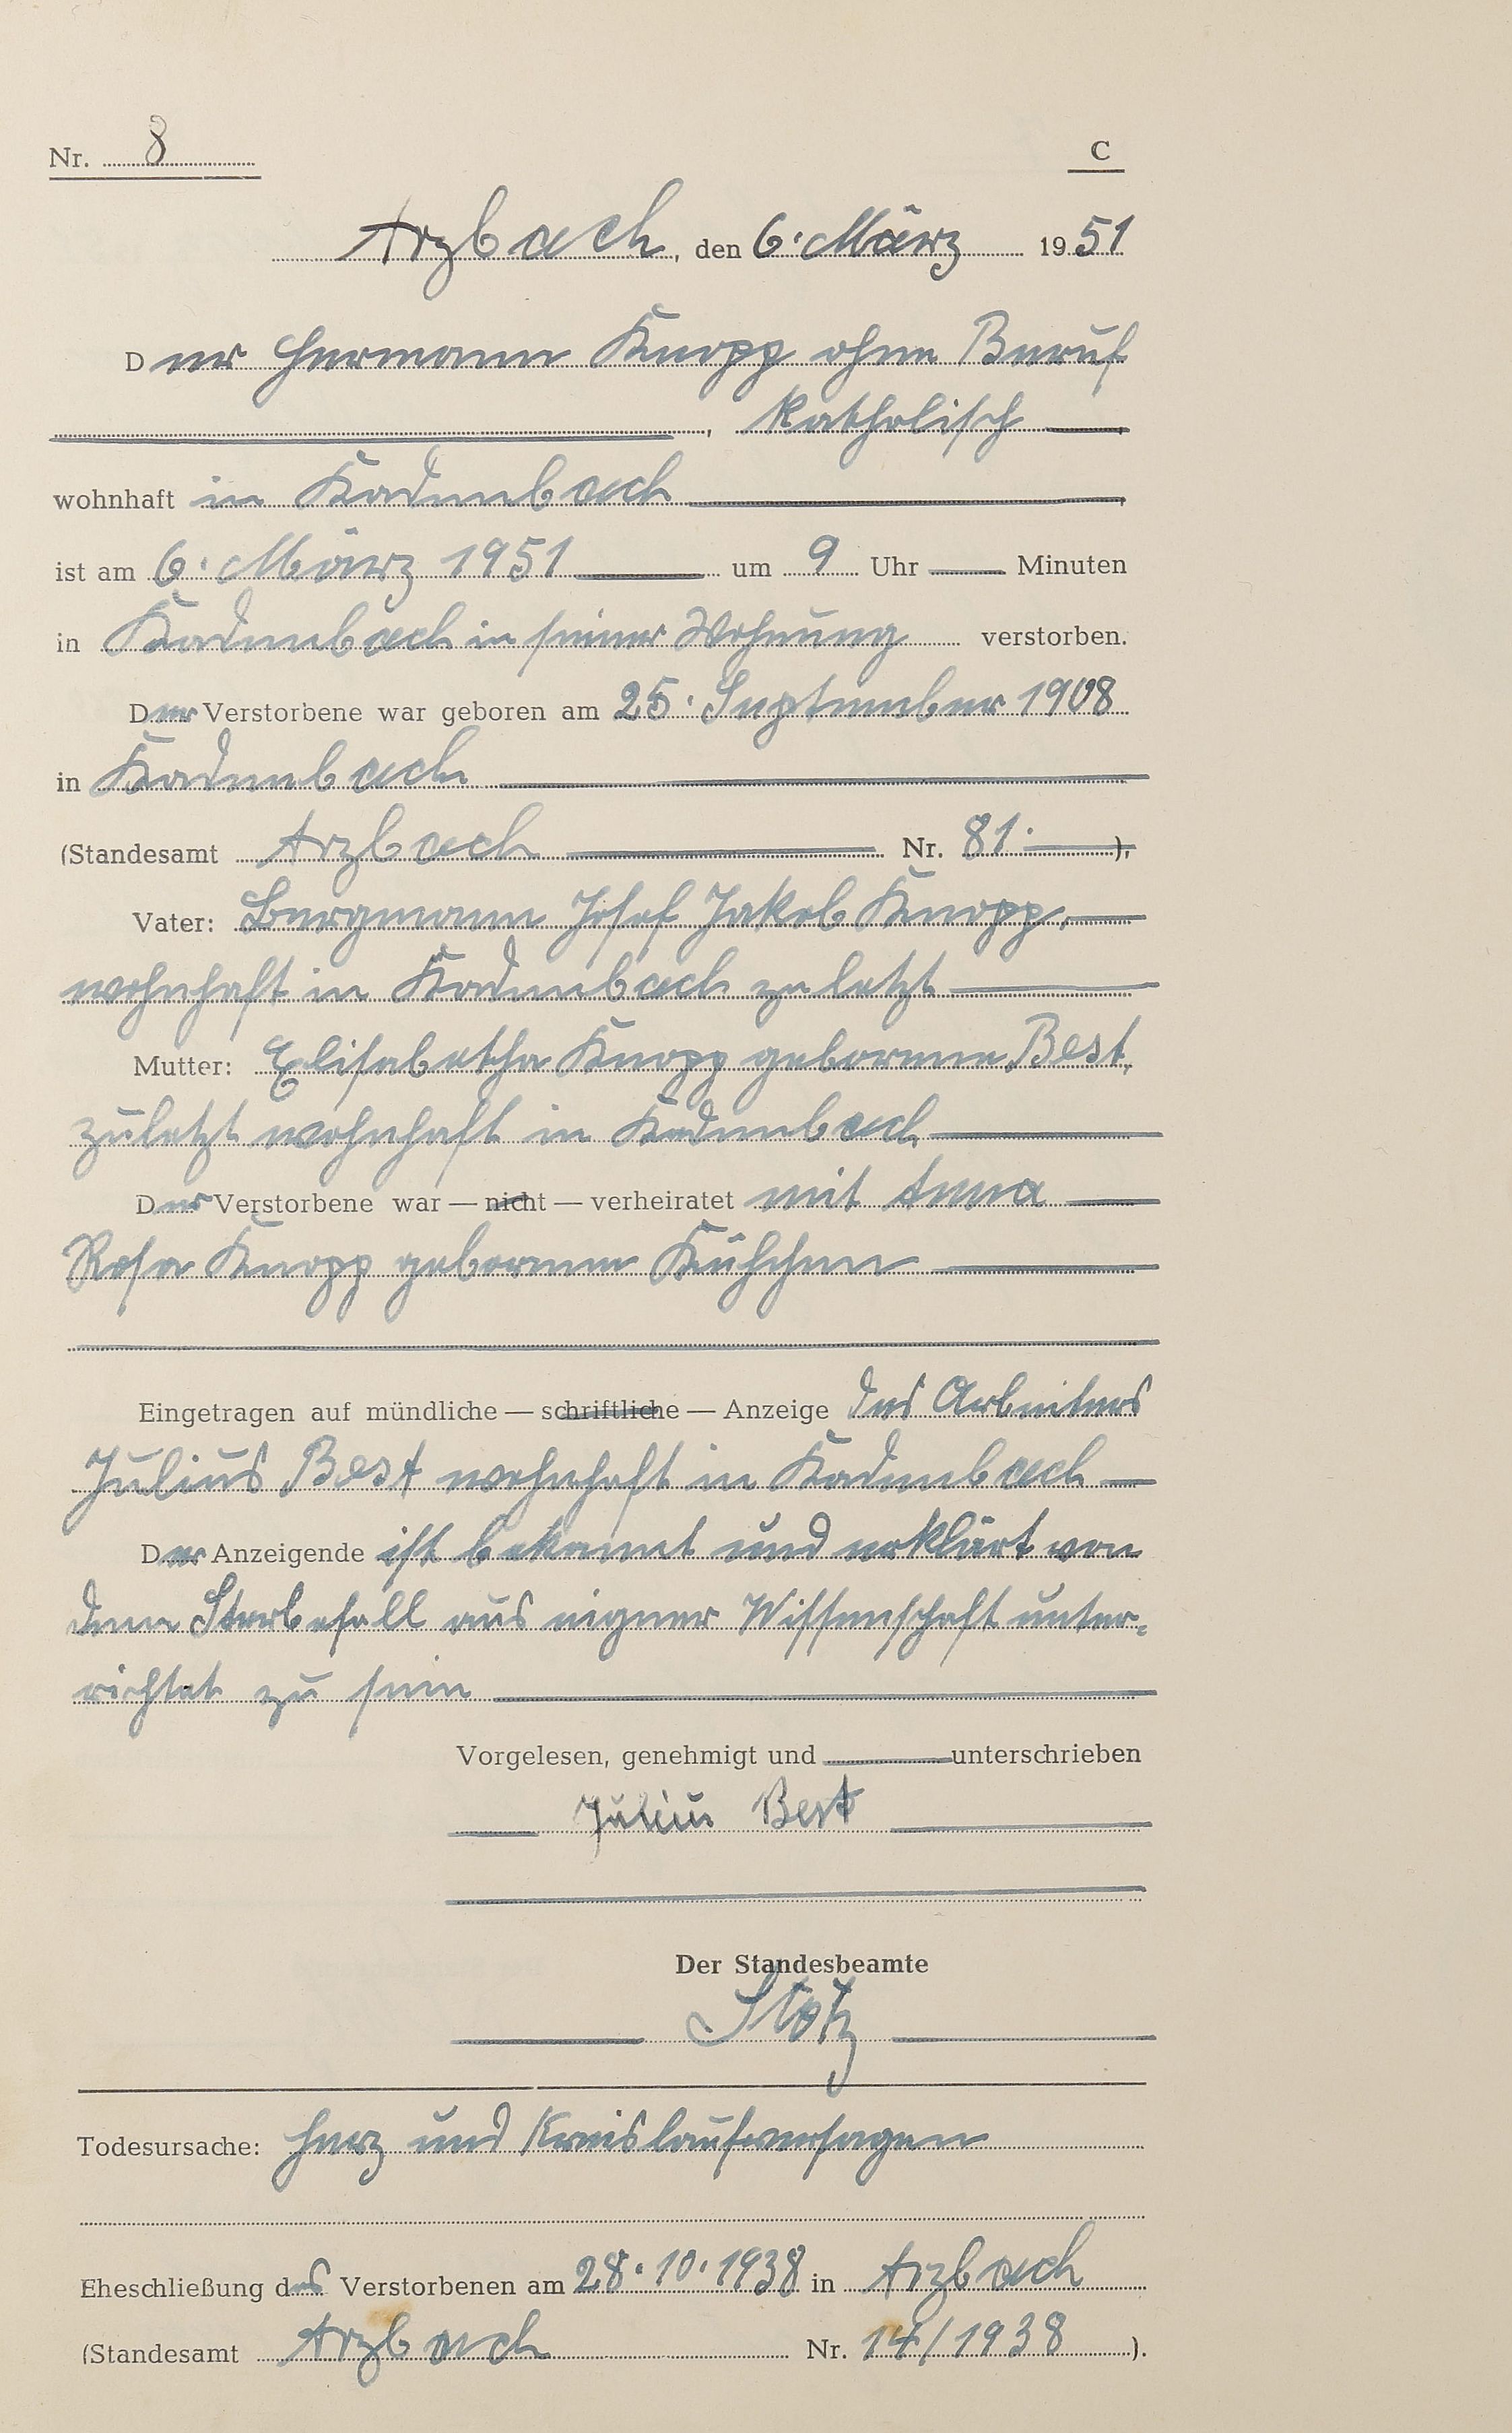 Nr. 8
C
Arzbach, den 6. März 1951
Der Hermann Knopp ohne Beruf
, katholisch
wohnhaft in Kadenbach
ist am 6. März 1951 um 9 Uhr Minuten
in Kadenbach in seiner Wohnung verstorben.
Der Verstorbene war geboren am 25. September 1908
in Kadenbach
(Standesamt Arzbach Nr. 81. ),
Vater: Bergmann Josef Jakob Knopp,
wohnhaft in Kadenbach zuletzt
Mutter: Elisabetha Knopp geborenne Best,
zuletzt wohnhaft in Kadenbach
Der Verstorbene war — nicht — verheiratet mit Anna
Rosa Knopp geborenne
Eingetragen auf mündliche — schriftliche — Anzeige des Arbeiters
Julius Best wohnhaft in Kadenbach
Der Anzeigende ist bekannt und erklärt von
dem Sterbefall aus eigner Wissenschaft unter-
richtet zu sein
Vorgelesen, genehmigt und unterschrieben
Julius Best
Der Standesbeamte
Stotz
Todesursache: Herz und Kreislaufversagen
Eheschließung des Verstorbenen am 28.10.1938 in Arzbach
(Standesamt Arzbach Nr. 14/1938 ).